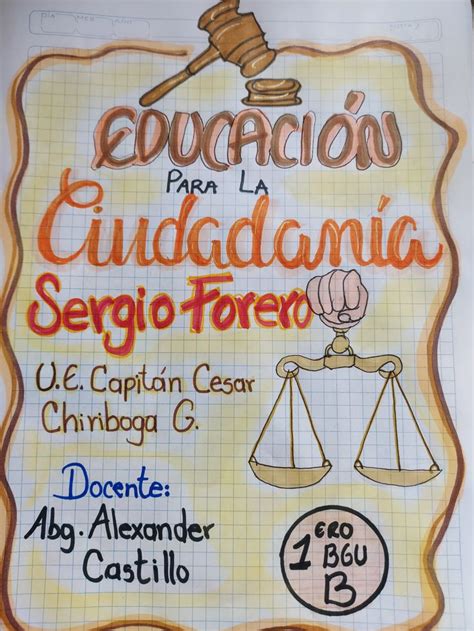 EDUCACIÓN
PARA LA
Ciudadanía
Sergio Forero
U.E. Capitán Cesar
Chiriboga G.
Docente:
Abg. Alexander
Castillo
1ERO
BGU
B